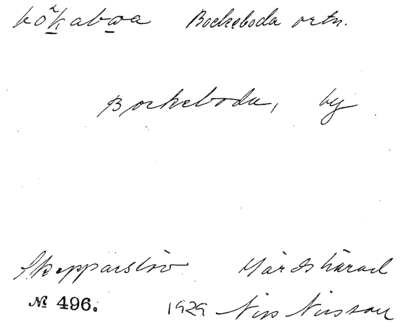 Bockeboda ortn.
Bockeboda, by
Skepparslöv Gärds härad
№ 496. 1929 Nils Nilsson